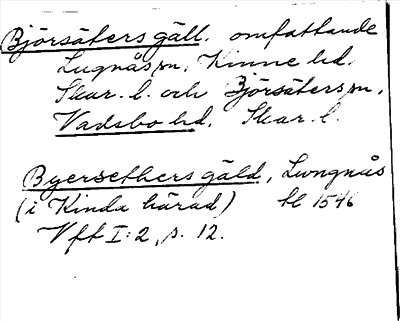 Björsäters gäll. omfattande
Lugnås sn, Kinne hd.
Skar. l. och Björsäters sn,
Vadsbo hd. Skar. l.
Byersethers gäld, Lwngnås
(i Kinda härad) tl 1546
Vft I:2, s. 12.